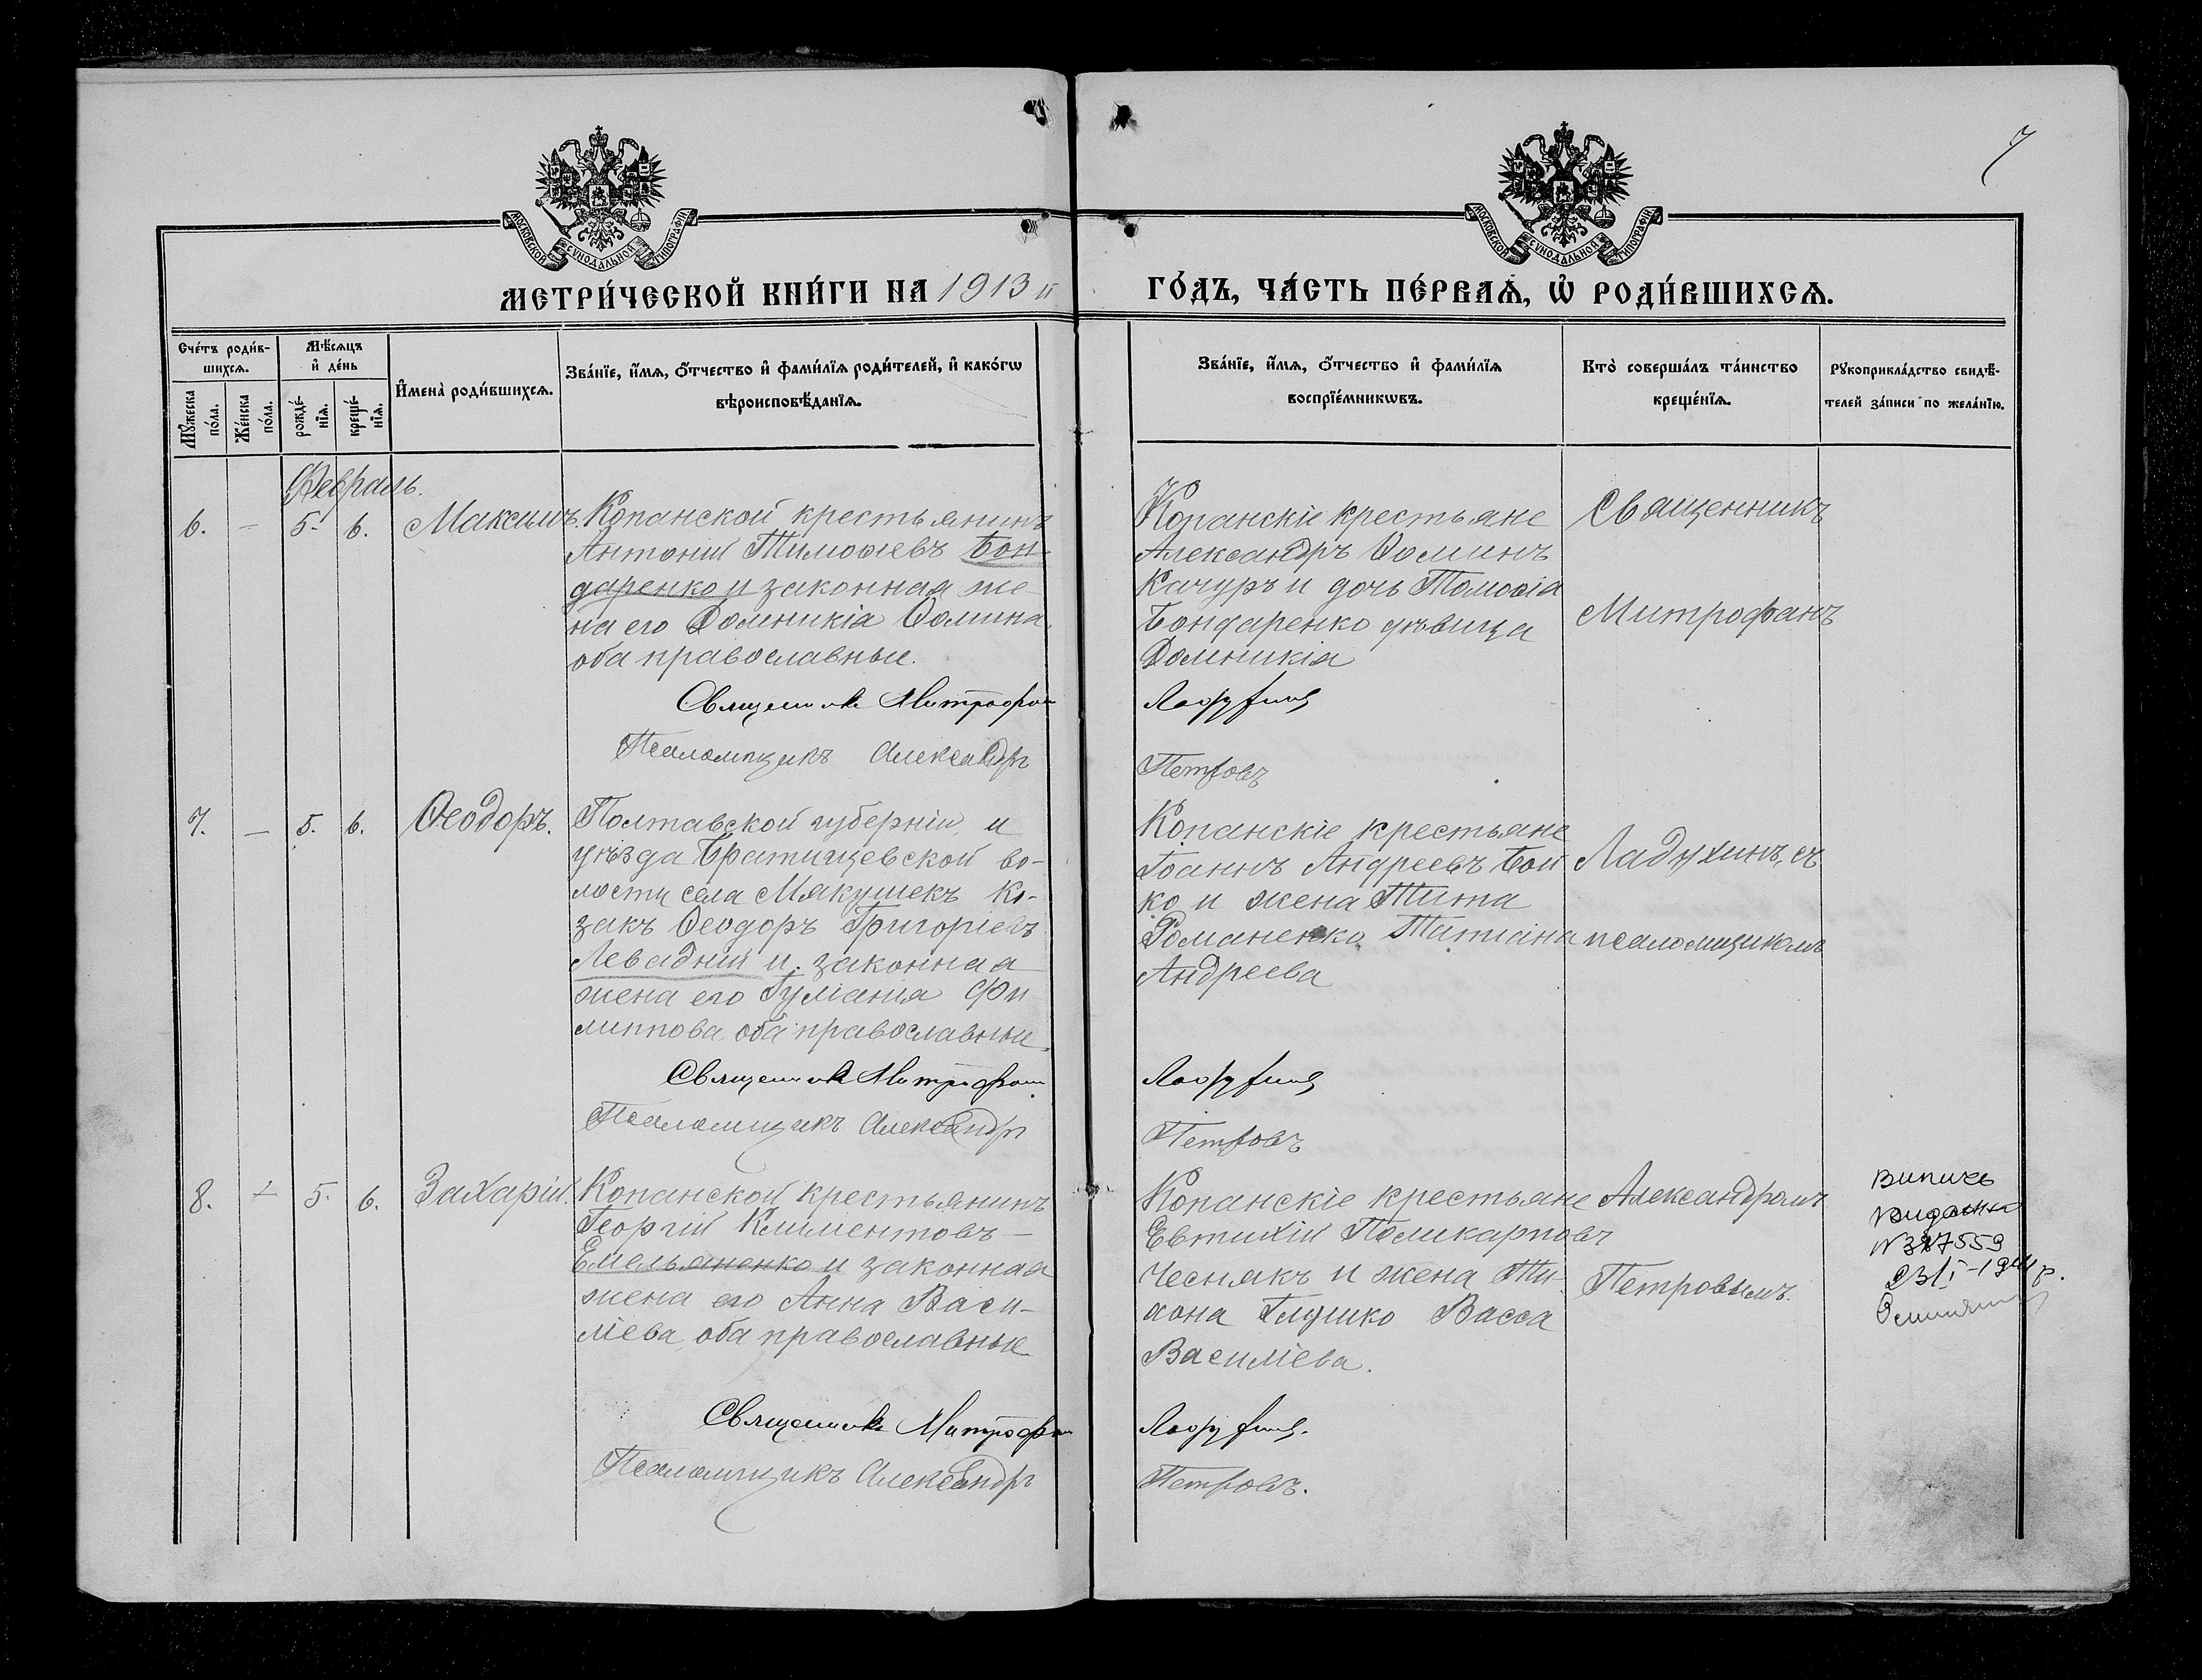 7
МОСКОВСКОЙ СѴНОДАЛЬНОЙ ТИПОГРАФІИ
МОСКОВСКОЙ СѴНОДАЛЬНОЙ ТИПОГРАФІИ
МЕТРИ́ЧЕСКОЙ КНИ́ГИ НА 1913 й
ГО́ДЪ, ЧА́СТЬ ПЕ́РВАѦ, Ѡ҆ РОДИ́ВШИХСѦ.
Сче́тъ роди́в-
шихсѧ.
Мꙋ́жеска
по́ла.
Же́нска
по́ла.
Мѣ́сѧцъ
и҆ де́нь
рожде́-
нїѧ.
креще́-
нїѧ.
И҆мена̀ роди́вшихсѧ.
Зва́нїе, и҆́мѧ, ѻ҆́тчество и҆ фами́лїѧ роди́телей, и҆ како́гѡ
вѣроисповѣ́данїѧ.
Зва́нїе, и҆́мѧ, ѻ҆́тчество и҆ фами́лїѧ
воспрїе́мникѡвъ.
Кто̀ соверша́лъ та́инство
креще́нїѧ.
Рꙋкоприкла́дство свидѣ́-
телей за́писи по жела́нїю.
Февраль.
6. — 5. 6. Максимъ.
Копанской крестьянинъ
Антоній Тимоѳеевъ Бон-
даренко и законная же-
на его Домникія Ѳомина,
оба православные.
Священникъ Митрофан
Псаломщикъ Александръ
Копанскіе крестьяне
Александръ Ѳоминъ
Качуръ и дочь Тимоѳія
Бондаренко дѣвица
Домникія
Ладухинъ
Петровъ
Священникъ
Митрофанъ
7. — 5. 6. Ѳеодоръ.
Полтавской губерніи и
уѣзда Братищевской во-
лости села Мякушекъ Ко-
закъ Ѳеодоръ Григоріевъ
Левадній и законная
жена его Іуліанія Фи
липпова оба православные.
Священникъ Митрофан
Псаломщикъ Александръ
Копанскіе крестьяне
Іоаннъ Андреевъ Бой
ко и жена Тита
Романенко Татіана
Андреева
Ладухинъ
Петровъ
Ладухинъ, съ
псаломщикомъ
8. — 5. 6. Захарій.
Копанской крестьянинъ
Георгій Климентовъ —
Емельяненко и законная
жена его Анна Васи-
ліева, оба православные
Священникъ Митрофан
Псаломщикъ Александръ
Копанскіе крестьяне
Евтихій Поликарповъ
Чеснякъ и жена Ти-
хона Глушко Васса
Василіева.
Ладухинъ.
Петровъ.
Александромъ
Петровымъ.
Випись
видана